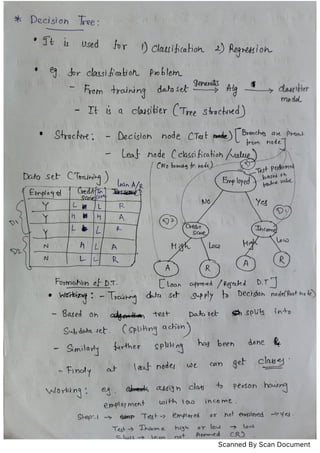 * Decision Tree:
• It is used for 1) Classification 2) Regression
• eg for classification problem
- From training data set generates Alg → classifier model
- It is a classifier (Tree structured)
• Structre: - Decision node (Test node) [Branches are Present from node]
- Leaf node (classification/value)
(No branching fr node)
Test Performed based on
Data set (Training)
Loan A/R
Employed Credit score Income
Y L R
Y h h A
Y L L R
N h L A
N L L R
D1
D2
Employed
No Yes
D2 D1
Credit Score
Income
High Low High Low
A R A R
Formation of D.T. [Loan approved / Rejected D.T]
• Working: - Training data set supply to Decision node (Root node)
- Based on test Data set splits into
Sub data set (spliting action)
- Similarly further spliting has been done &
- Finaly at leaf nodes we can get classes
Working: eg. assign class to person having
employment with low income.
Step:1 → Test → Employed or not employed → Yes
Test → Income high or low → low
(R)
Scanned By Scan Document